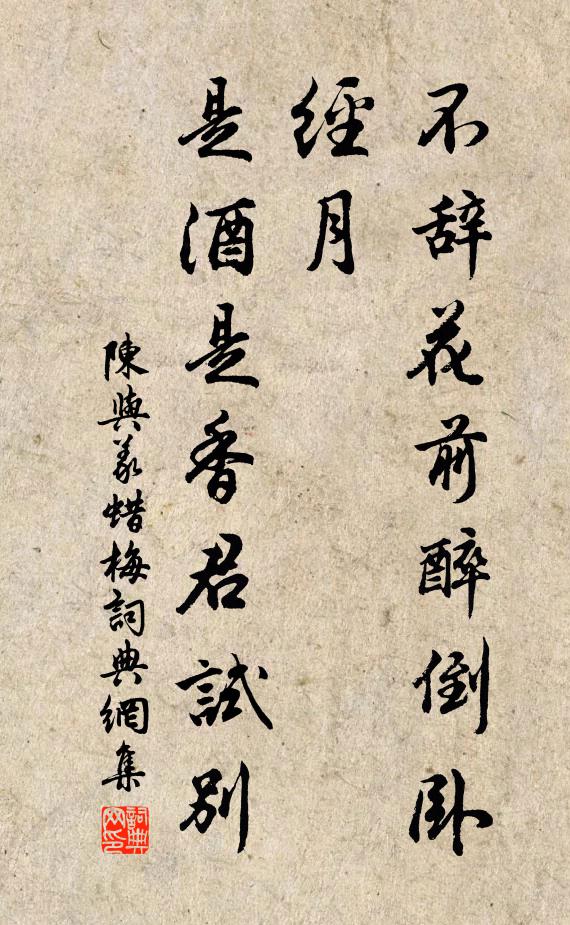 不辞花前醉倒卧
經月
是酒是香君試別
陳與義蜡梅詞典網集
詞典网印